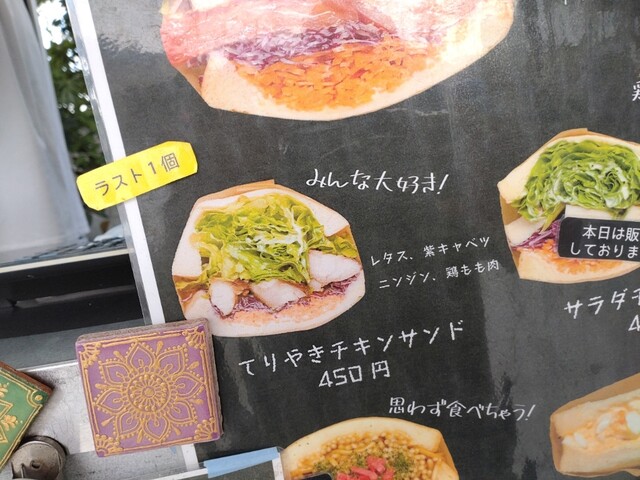 ラスト1個
みんな大好き!
レタス、紫キャベツ
ニンジン、鶏もも肉
てりやきチキンサンド
450円
本日は販
しておりま
サラダチ
思わず食べちゃう!